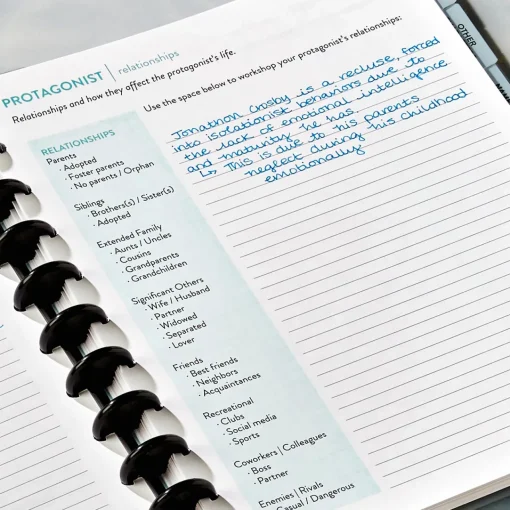 OTHER
PROTAGONIST | relationships
Relationships and how they affect the protagonist's life.
Use the space below to workshop your protagonist's relationships:
RELATIONSHIPS
Parents
· Adopted
· Foster parents
· No parents / Orphan
Siblings
· Brothers(s) / Sister(s)
· Adopted
Extended Family
· Aunts / Uncles
· Cousins
· Grandparents
· Grandchildren
Significant Others
· Wife / Husband
· Partner
· Widowed
· Separated
· Lover
Friends
· Best friends
· Neighbors
· Acquaintances
Recreational
· Clubs
· Social media
· Sports
Coworkers | Colleagues
· Boss
· Partner
Enemies | Rivals
· Casual / Dangerous
Jonathon Crosby is a recluse, forced
into isolationist behaviors due to
the lack of emotional intelligence
and maturity he has.
↳ This is due to his parents
neglect during his childhood
emotionally